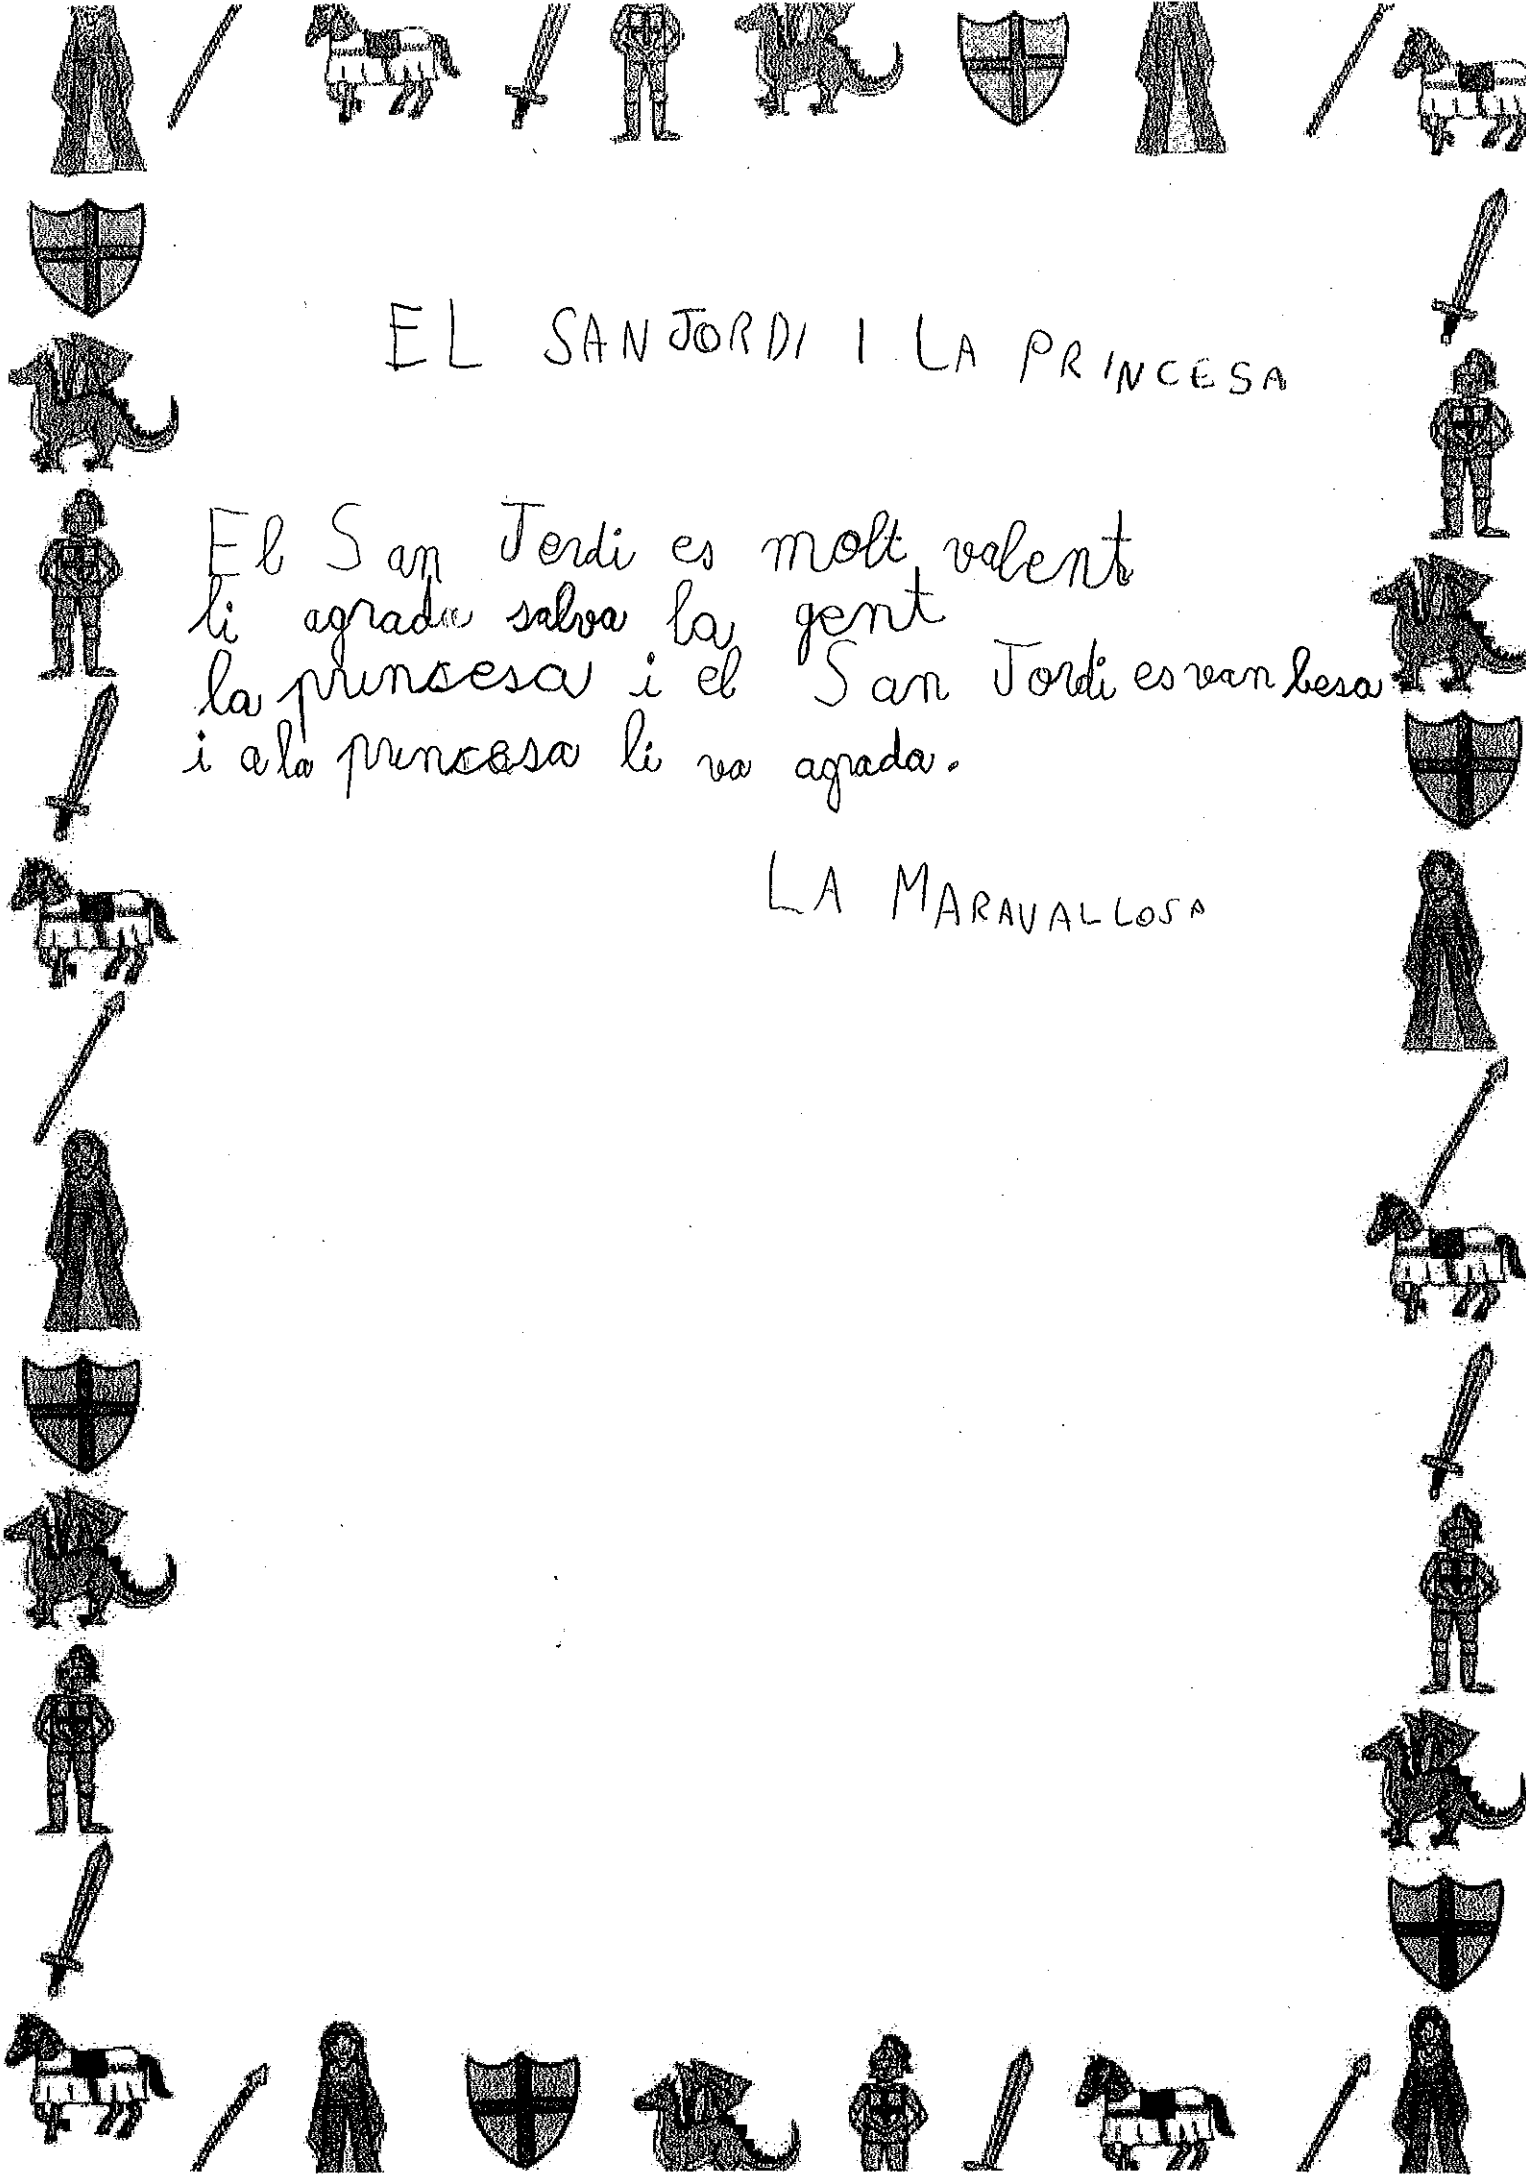 EL SAN JORDI I LA PRINCESA
El San Jordi es molt valent
li agrada salva la gent
la princesa i el San Jordi es van besa
i a la princesa li va agrada.
LA MARAVALLOSA